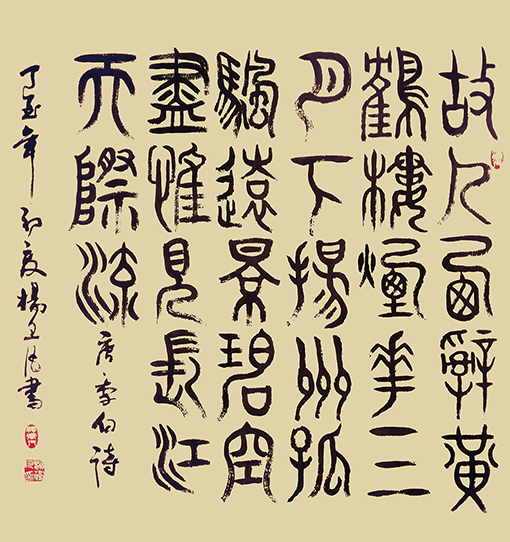 故人西辭黃
鶴樓煙花三
月下揚州孤
颿遠景碧空
盡惟見長江
天際流
唐李白詩
丁酉年初夏楊書